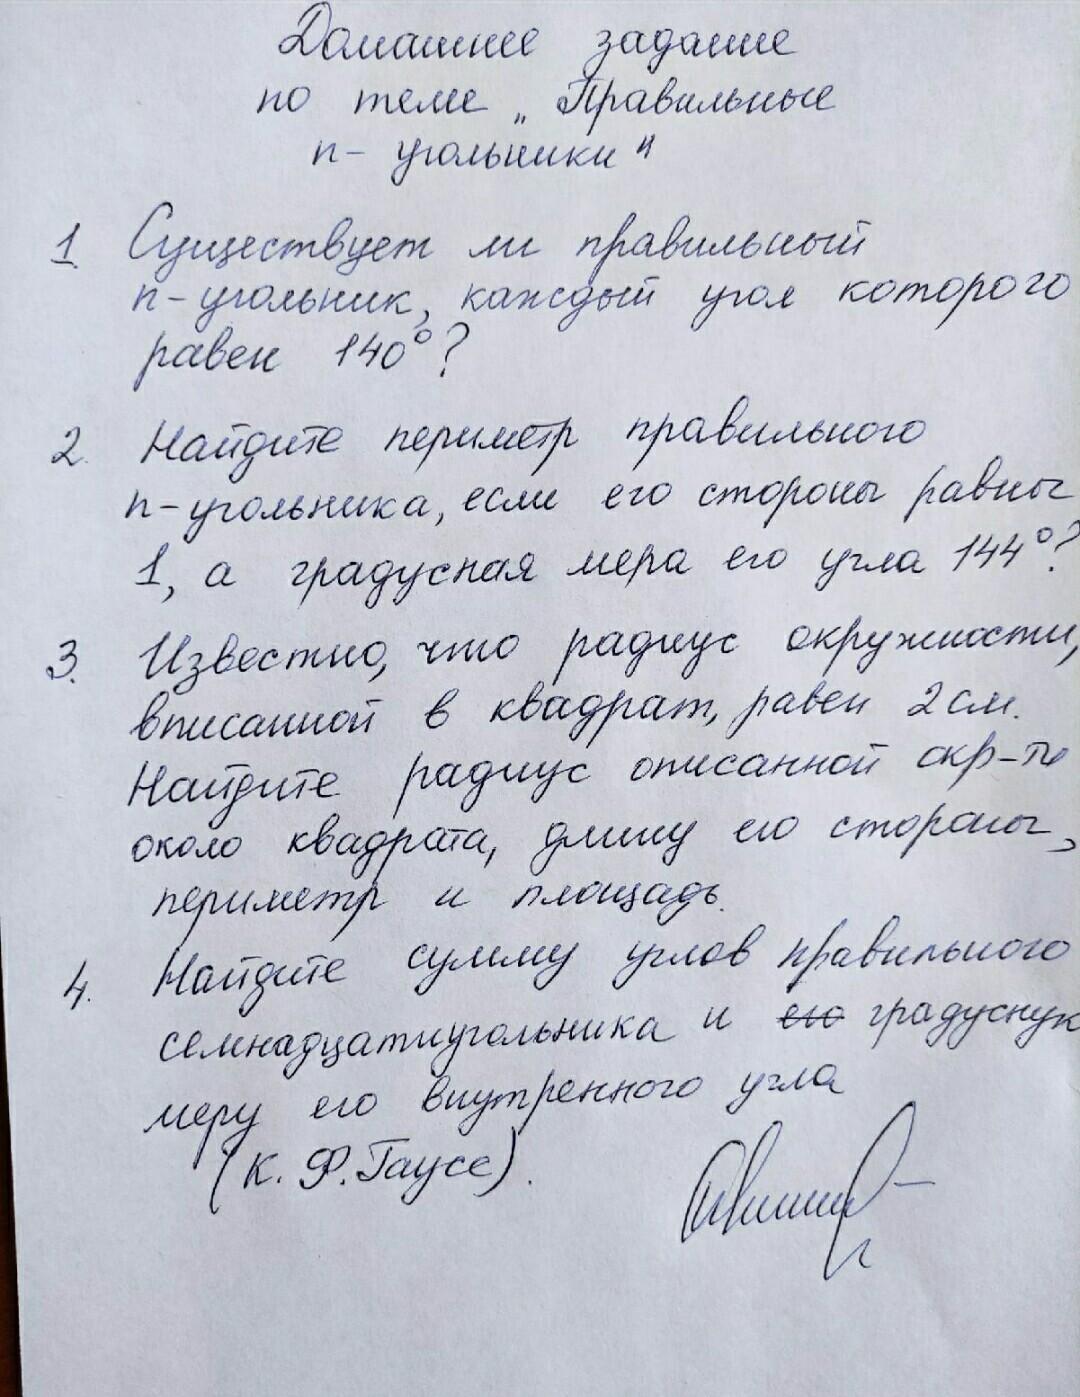 Домашнее задание
по теме „Правильные
n- угольники"
1. Существует ли правильный
n-угольник, каждый угол которого
равен 140°?
2. Найдите периметр правильного
n-угольника, если его стороны равны
1, а градусная мера его угла 144°?
3. Известно, что радиус окружности,
вписанной в квадрат, равен 2 см.
Найдите радиус описанной окр-ти
около квадрата, длину его стороны,
периметр и площадь.
4. Найдите сумму углов правильного
семнадцатиугольника и его градусную
меру его внутренного угла
(К. Ф. Гаусс).